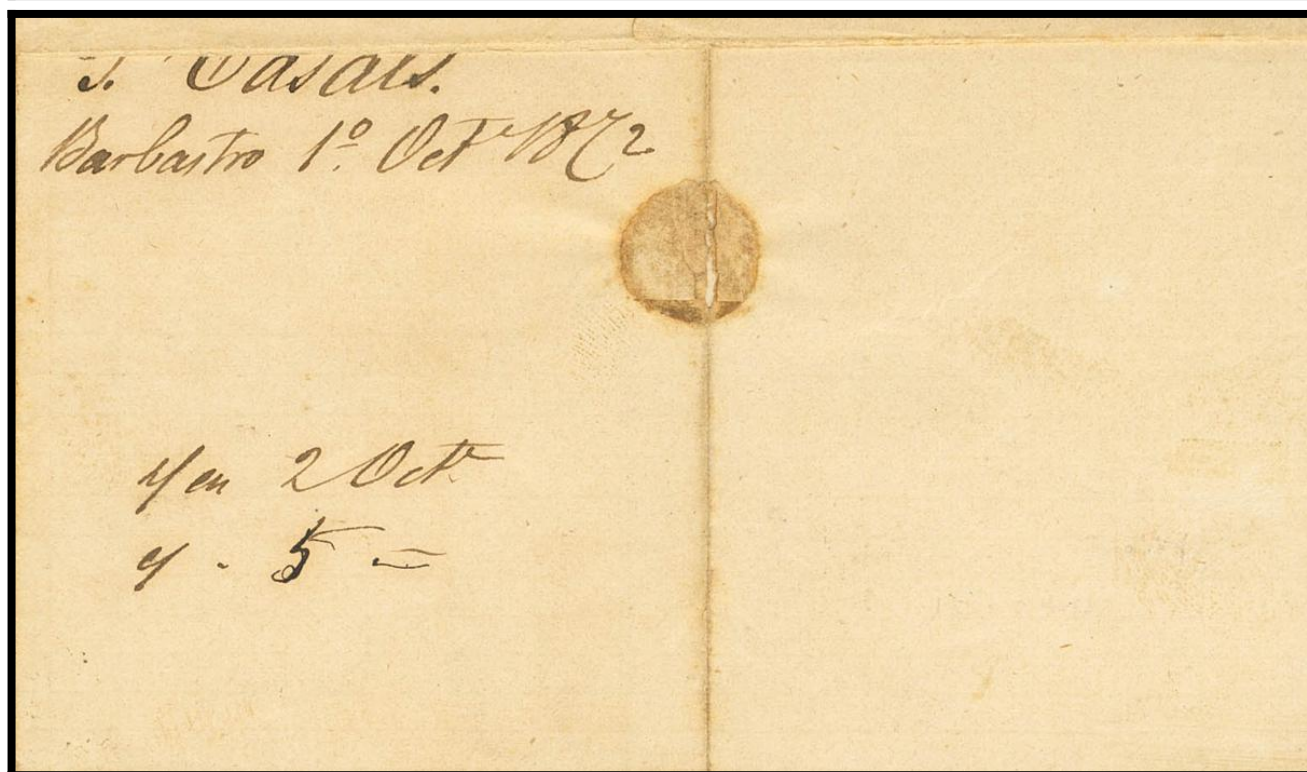 J. Casals.
Barbastro 1º. Oct.e 1872
y en 2 Oct.e
y . 5 =